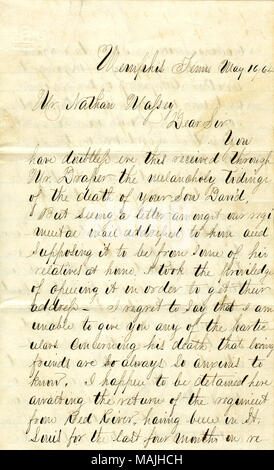 Memphis Tenn May 16, 64
Mr. Nathan Massey
Dear Sir
You
have doubtless ere this received through
Mr. Draper the melancholy tidings
of the death of your Son David,
But Seeing a letter amongst our regi
mental mail addressed to him and
supposing it to be from some of his
relatives at home, I took the priviledge
of opening it in order to get their
address - I regret to Say that I am
unable to give you any of the partic
ulars concerning his death, that loving
friends are So always So anxious to
know. I happen to be detained here
awaiting the return of the regiment
from Red River, having been in St.
Louis for the last four months on re
alamy
Image ID: MAJHCH
www.alamy.com